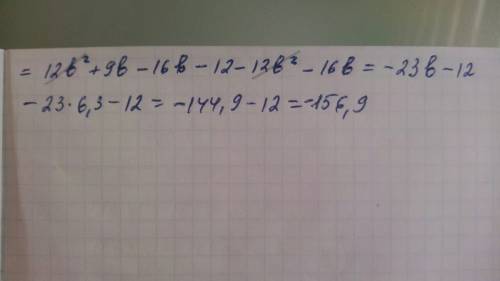 = 12в² + 9в - 16в - 12 - 12в² - 16в = -23в - 12
-23·6,3 - 12 = -144,9 - 12 = -156,9